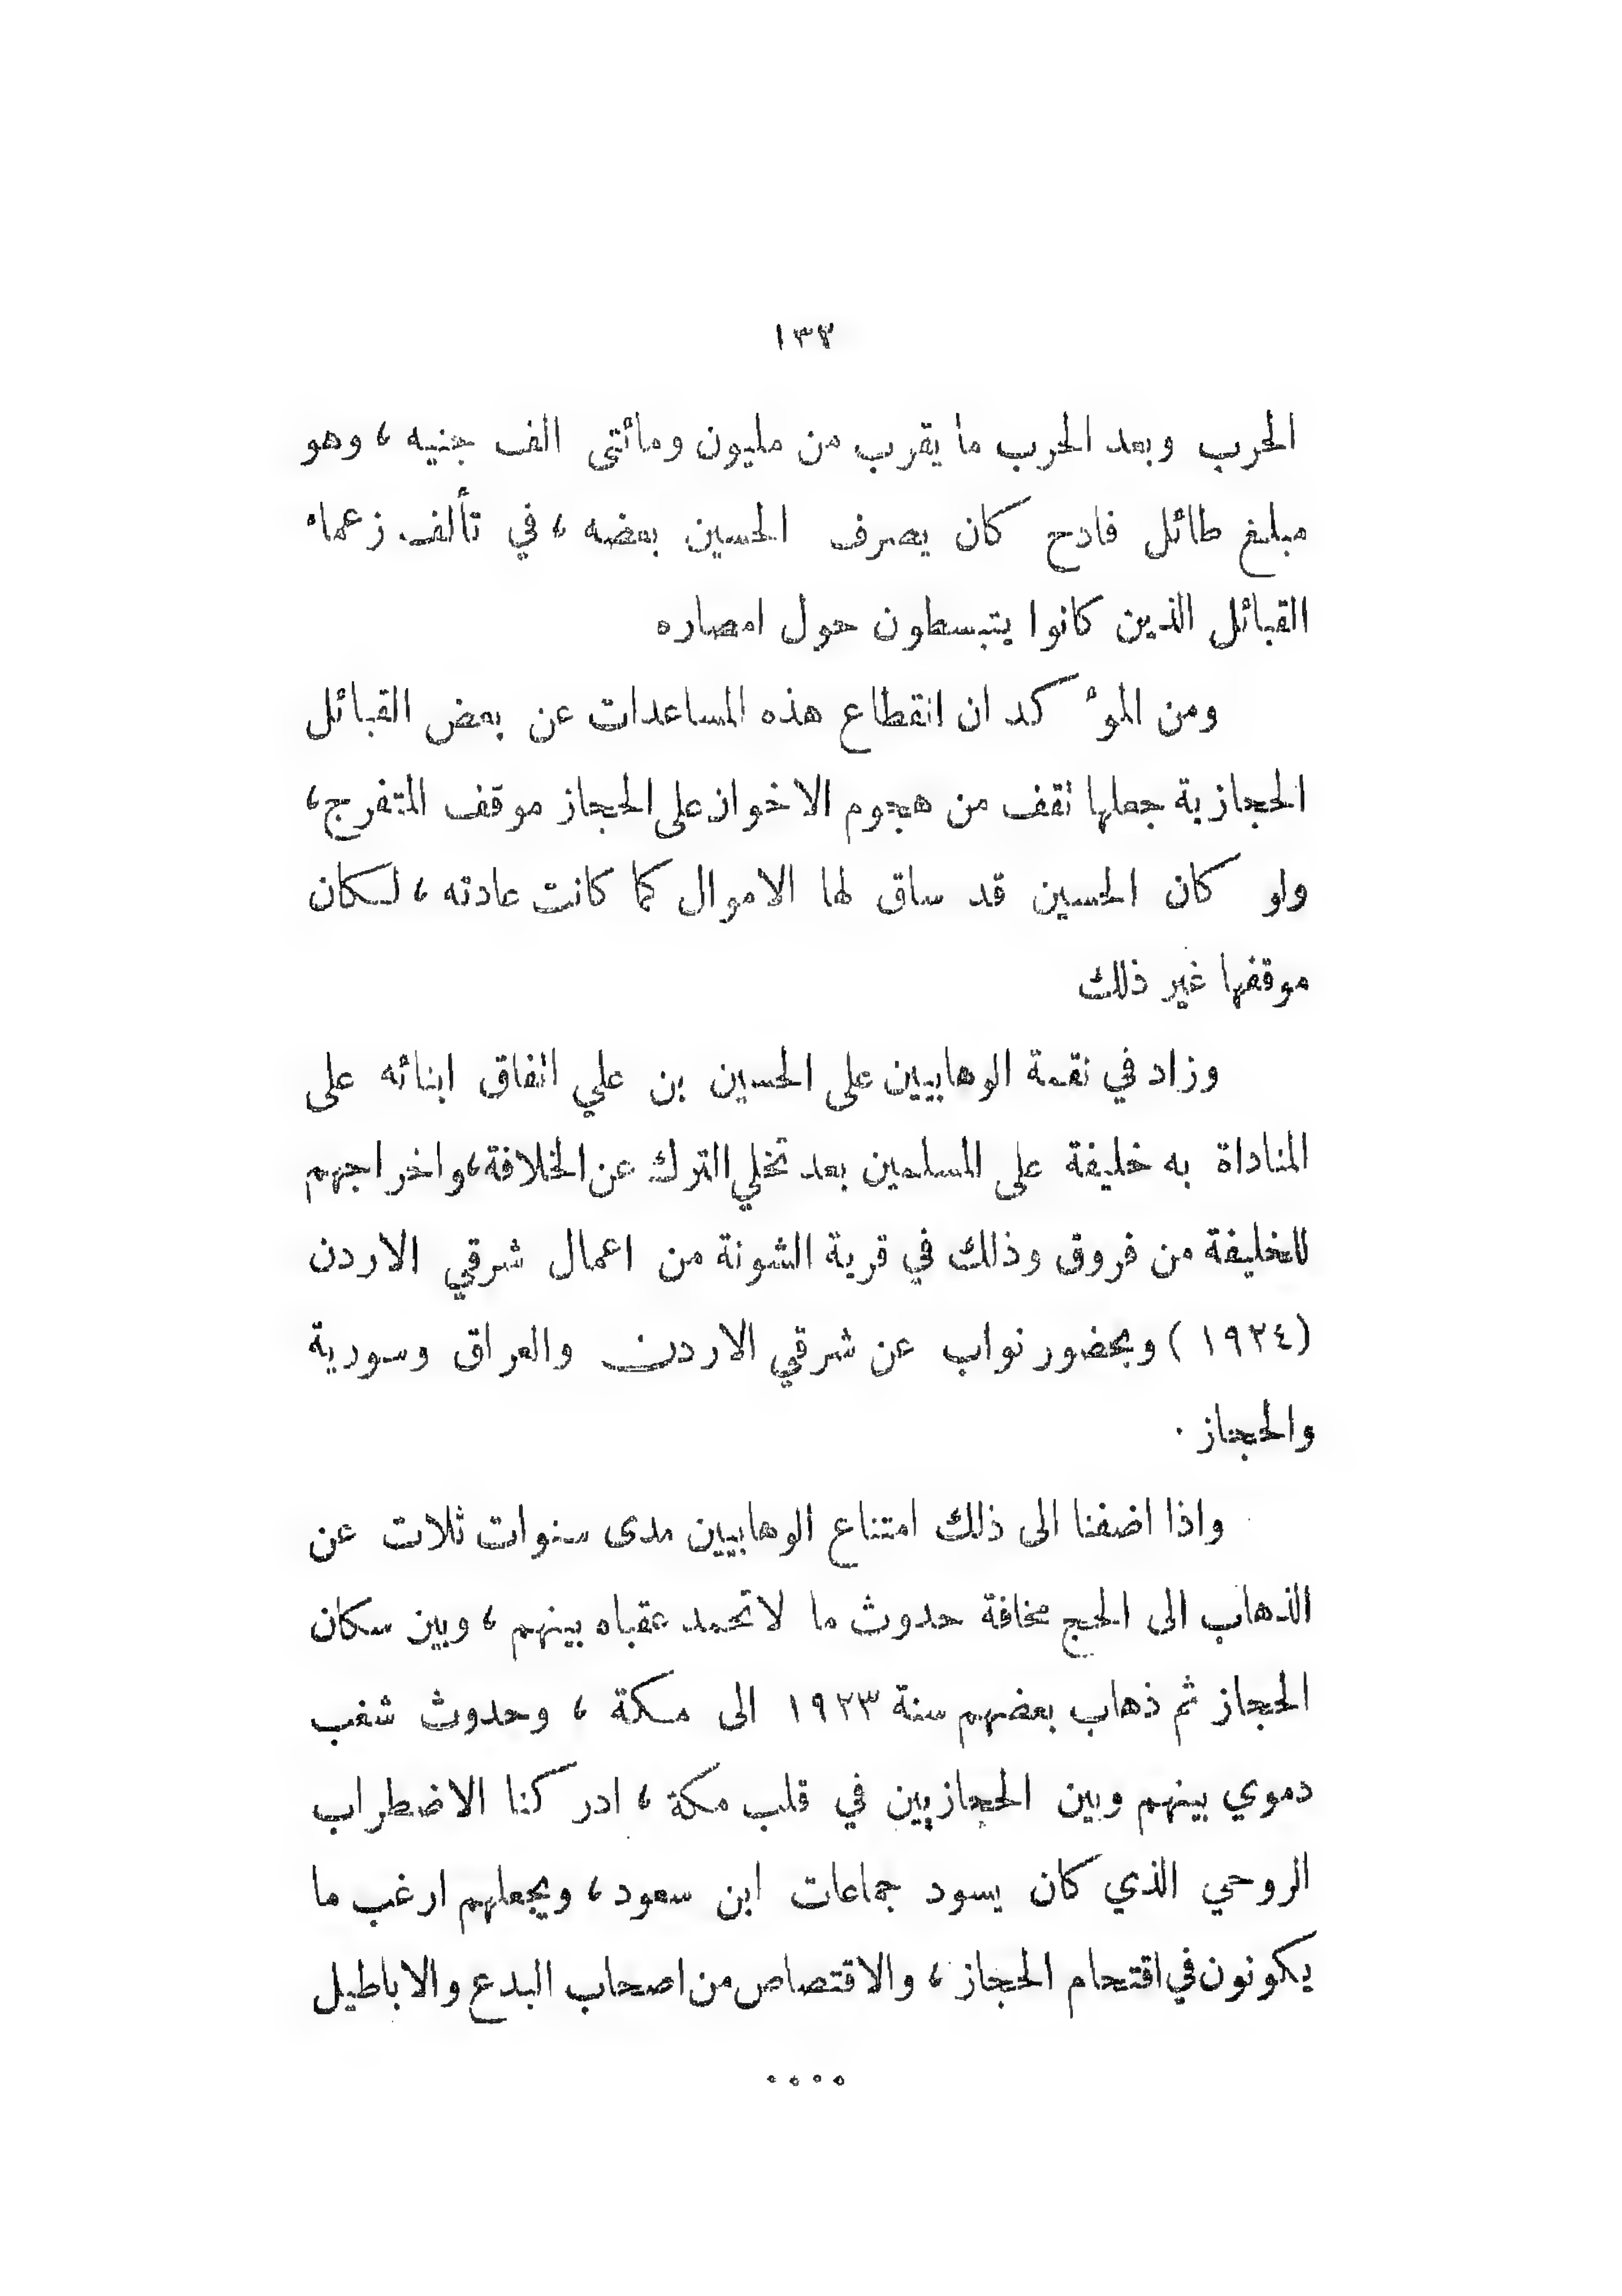 ١٣٢
الحرب وبعد الحرب ما يقرب من مليون ومائتى الف جنيه ، وهو
مبلغ طائل فادح كان يصرف الحسين بعضه ، في تألف زعماء
القبائل الذين كانوا يتبسطون حول امصاره
ومن المؤكد ان انقطاع هذه المساعدات عن بعض القبائل
الحجازية جعلها تقف من هجوم الاخوان على الحجاز موقف المتفرج ،
ولو كان الحسين قد ساق لها الاموال كما كانت عادته ، لكان
موقفها غير ذلك
وزاد في نقمة الوهابيين على الحسين بن علي اتفاق ابنائه على
المناداة به خليفة على المسلمين بعد تخلي الترك عن الخلافة ، واخراجهم
للخليفة من فروق وذلك في قرية الشونة من اعمال شرقي الاردن
(١٩٢٤) وبحضور نواب عن شرقي الاردن والعراق وسورية
والحجاز .
واذا اضفنا الى ذلك امتناع الوهابيين مدى سنوات ثلاث عن
الذهاب الى الحج مخافة حدوث ما لا تحمد عقباه بينهم ، وبين سكان
الحجاز ثم ذهاب بعضهم سنة ١٩٢٣ الى مكة ، وحدوث شغب
دموي بينهم وبين الحجازيين في قلب مكة ، ادركنا الاضطراب
الروحي الذي كان يسود جماعات ابن سعود ، ويجعلهم ارغب ما
يكونون في اقتحام الحجاز ، والاقتصاص من اصحاب البدع والاباطيل
....